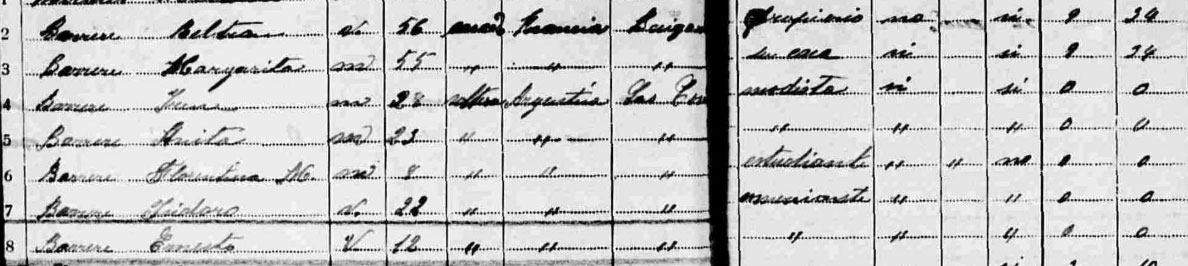 2 Barrere Beltran v. 56 casad Francia 9 24
3 Barrere Margarita m 55 " " " su casa si si 9 24
4 Barrere Irene m 28 soltera Argentina modista si si 0 0
5 Barrere Anita m 23 " " " " " " 0 0
6 Barrere Florentina M. m 8 " " " estudiante " " no 0 0
7 Barrere Isidoro v. 22 " " " " " 0 0
8 Barrere Ernesto V 12 " " " " " " 0 0